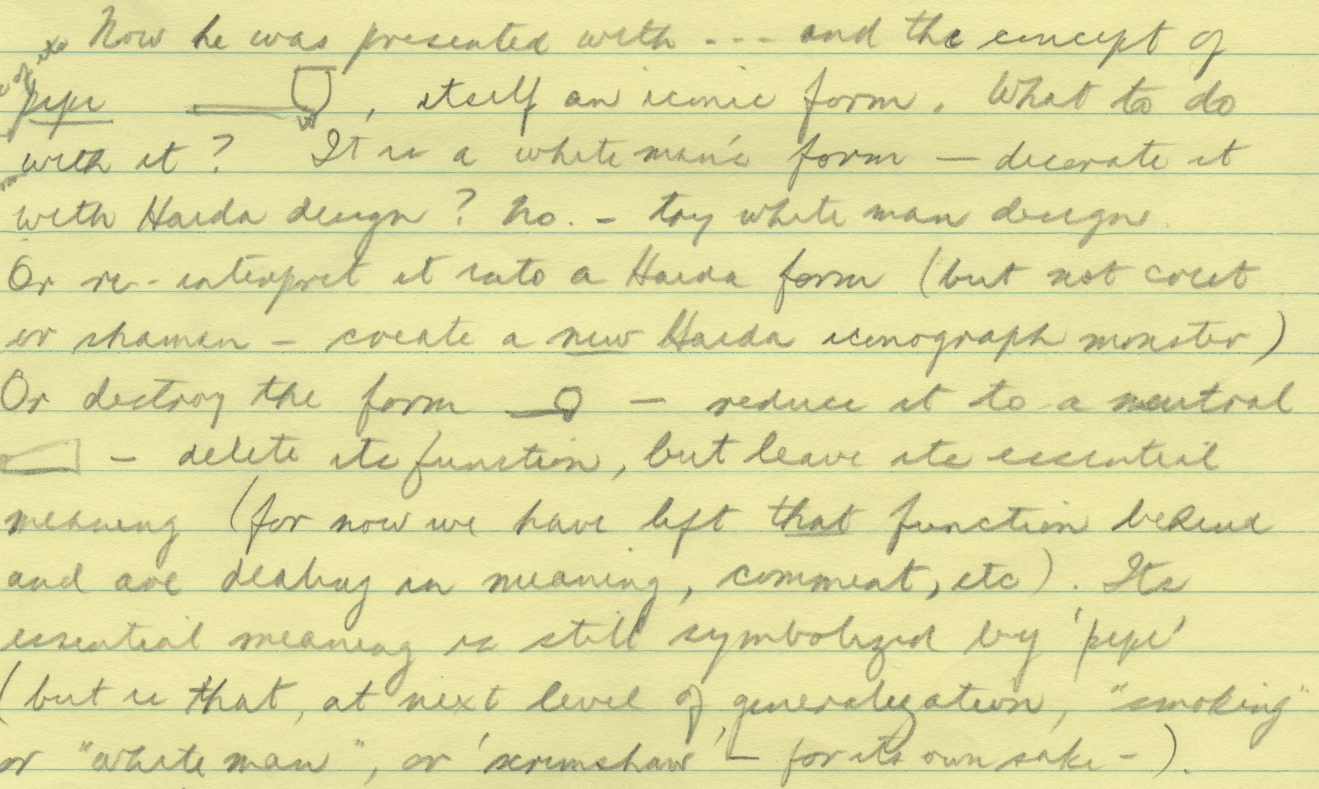 Now he was presented with --- and the concept of
pipe , itself an iconic form. What to do
with it? It is a white man's form — decorate it
with Haida design? No. – try white man design.
Or re-interpret it into a Haida form (but not crest
or shaman – create a new Haida iconograph monster)
Or destroy the form — reduce it to a neutral
— delete its function, but leave its essential
meaning (for now we have left that function behind
and are dealing in meaning, comment, etc). Its
essential meaning is still symbolized by 'pipe'
(but is that, at next level of generalization, "smoking"
or "white man", or 'scrimshaw' – for its own sake –).